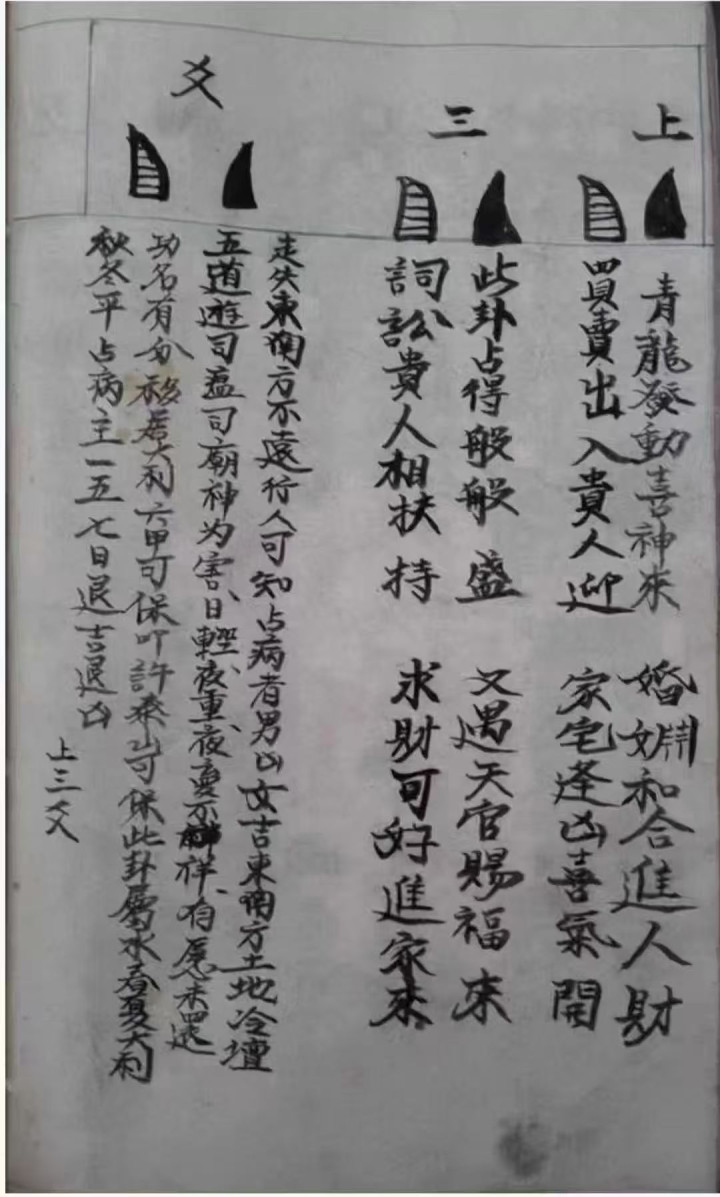 上 三 爻
青龍發動喜神來 婚姻和合進人財
買賣出入貴人迎 家宅逢凶喜氣開
此卦占得般般盛 又遇天官賜福來
詞訟貴人相扶持 求財可好進家來
走失東南方不遠行人可知占病者男凶女吉東南方土地冷壇
五道遊司瘟司廟神为害、日輕夜重、夜夢不祥、有愿未還
功名有分移居大利六甲可保叩許泰山可保此卦屬水春夏大利
秋冬平占病主一五七日退吉退凶
上三爻